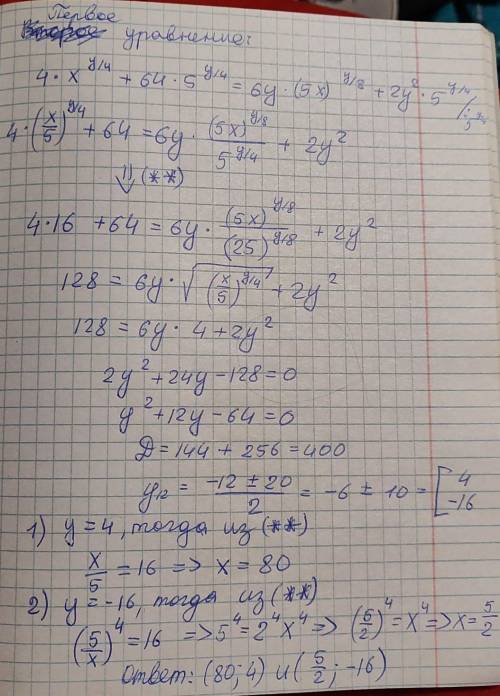 Первое
уравнение:
4·x^(y/4) + 64·5^(y/4) = 6y·(5x)^(y/8) + 2y²·5^(y/4) /:5^(y/4)
4·(x/5)^(y/4) + 64 = 6y·(5x)^(y/8)/5^(y/4) + 2y²
⇓(**)
4·16 + 64 = 6y·(5x)^(y/8)/(25)^(y/8) + 2y²
128 = 6y·√((x/5)^(y/4)) + 2y²
128 = 6y·4 + 2y²
2y² + 24y - 128 = 0
y² + 12y - 64 = 0
Д = 144 + 256 = 400
y₁₂ = (-12 ± 20)/2 = -6 ± 10 = [4 -16
1) y = 4, тогда из (**)
x/5 = 16 => x = 80
2) y = -16, тогда из (**)
(5/x)^4 = 16 => 5^4 = 2^4 x^4 => (5/2)^4 = x^4 => x = 5/2
Ответ: (80; 4) и (5/2; -16)